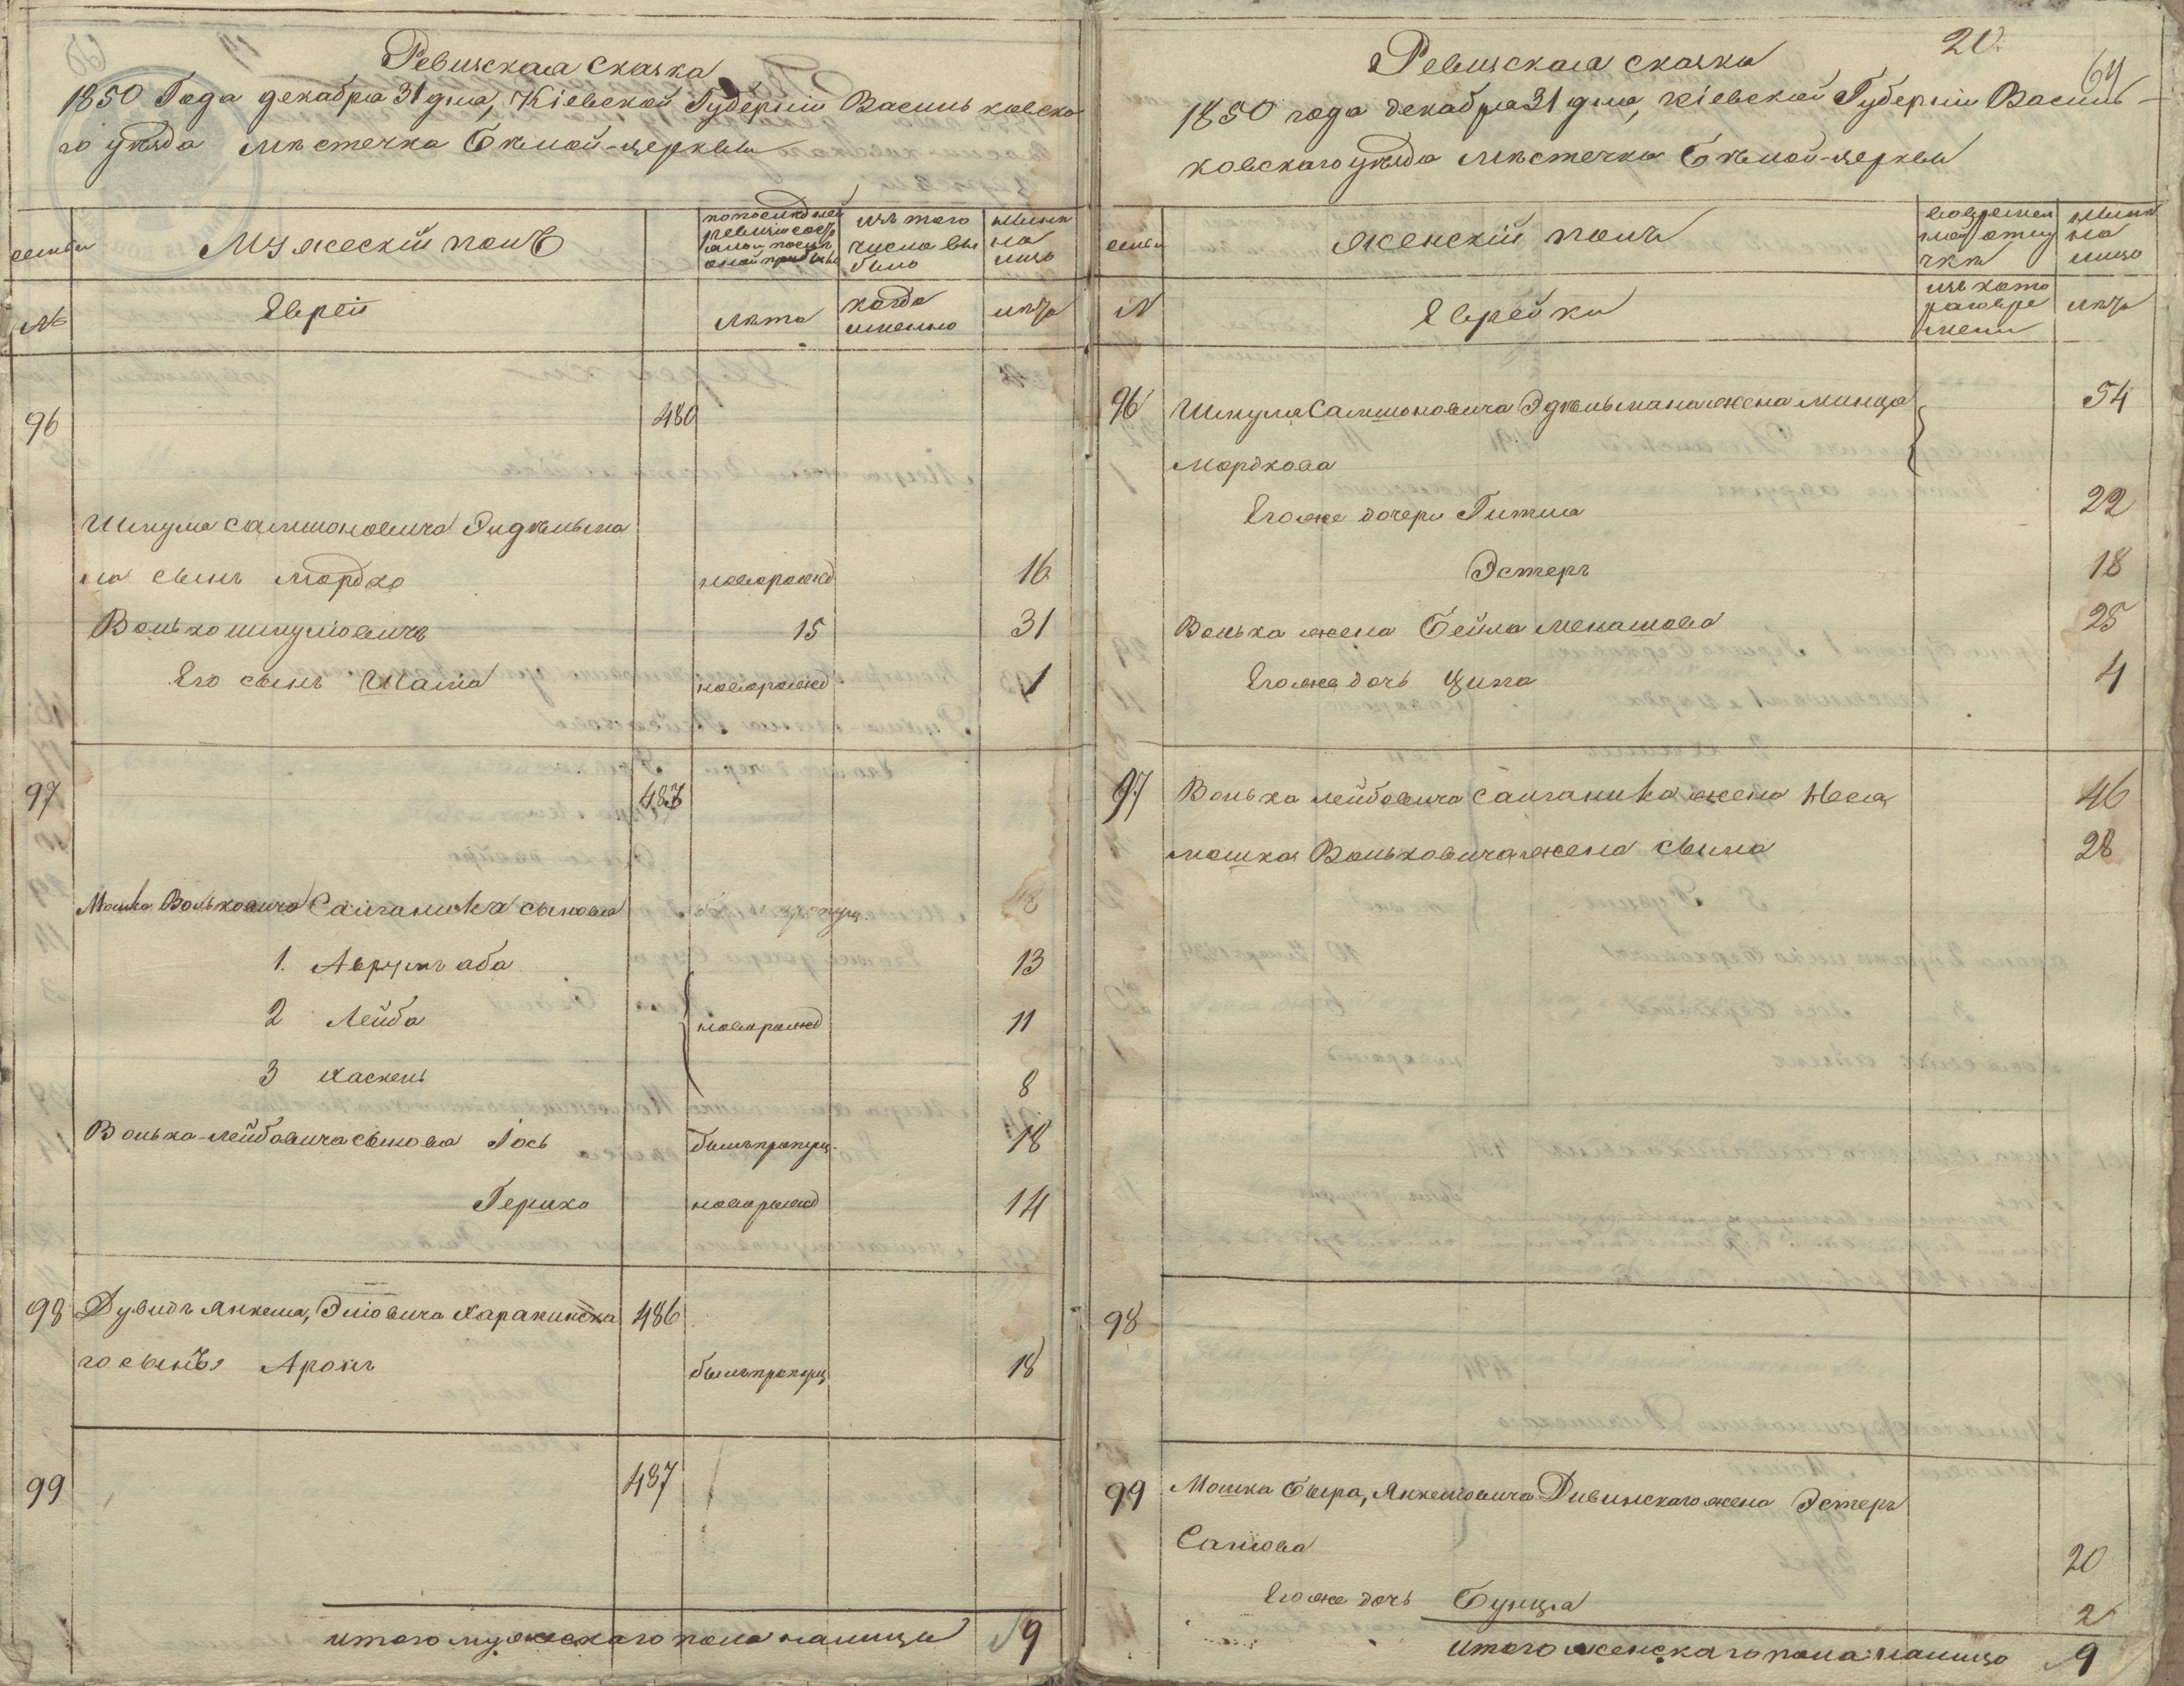 Ревизская сказка
1850 Года декабря 31 дня, Кіевской Губерніи Васильковска
го уѣзда мѣстечка Бѣлой-церкви
семьи
Мужескій полъ
по последней
ревизіи состо
яло и послѣ
оной прибыло
изъ того
числа вы
было
нынѣ
на
лицо
№
Евреи
лѣта
когда
именно
лѣта
96 480
Шмуля Самшоновича Эйдельма
на сынъ Мордко новорожд 16
Волько Шмулiовичъ 15 31
Его сынъ новорожд 1
97
Мошка Вольковича Сайганика сыновья
1. Аврумъ аба 13
2 Лейба новорожд 11
3 Хаскель 8
Волька-Лейбовича сыновья Іось былъ пропущ. 18
Гершко новорожд 14
98 Дувидъ Янкеля, Элiовича 486
го сынъ Аронъ былъ пропущ 18
99 487
итого мужескаго пола налицо 9
20.
64
Ревизская сказка
1850 года декабря 31 дня, Кіевской Губерніи Василь-
ковскаго уѣзда мѣстечка Бѣлой-церкви
семьи
женскій полъ
во времен
ной отлу
чкѣ
нынѣ
на
лицо
№
Еврейки
изъ кото
раго вре
мени
лѣта
96 Шмуля Самшоновича Эдѣльмана жена Минця 54
Мордкова
Его же дочери Гитля 22
Эстеръ 18
Волька жена Бейла Менашова 25
Его же дочь Ципа 4
97 Волька Лейбовича Сайганика жена Неся 46
Мошка Вольковича жена 28
98
99 Мошка Бера, Янкелiовича Дивинскаго жена Эстеръ
20
Его же дочь Бунця 2
итого женскаго пола налицо 9